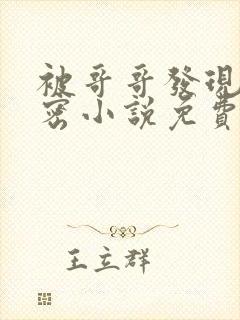 被哥哥發現
密小說免費
王立群